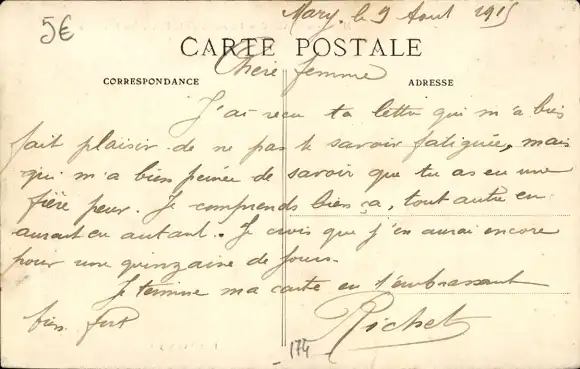 5€
Mary, le 9 Aout 1915
CARTE POSTALE
Chère femme
CORRESPONDANCE
ADRESSE
J'ai recu ta lettre qui m'a bien
fait plaisir de ne pas te savoir fatiguée, mais
qui m'a bien peinée de savoir que tu as eu une
fière peur. Je comprends bien ça, tout autre en
aurait eu autant. Je crois que j'en aurai encore
pour une quinzaine de jours.
Je termine ma carte en t'embrassant
bien fort
Richet
174